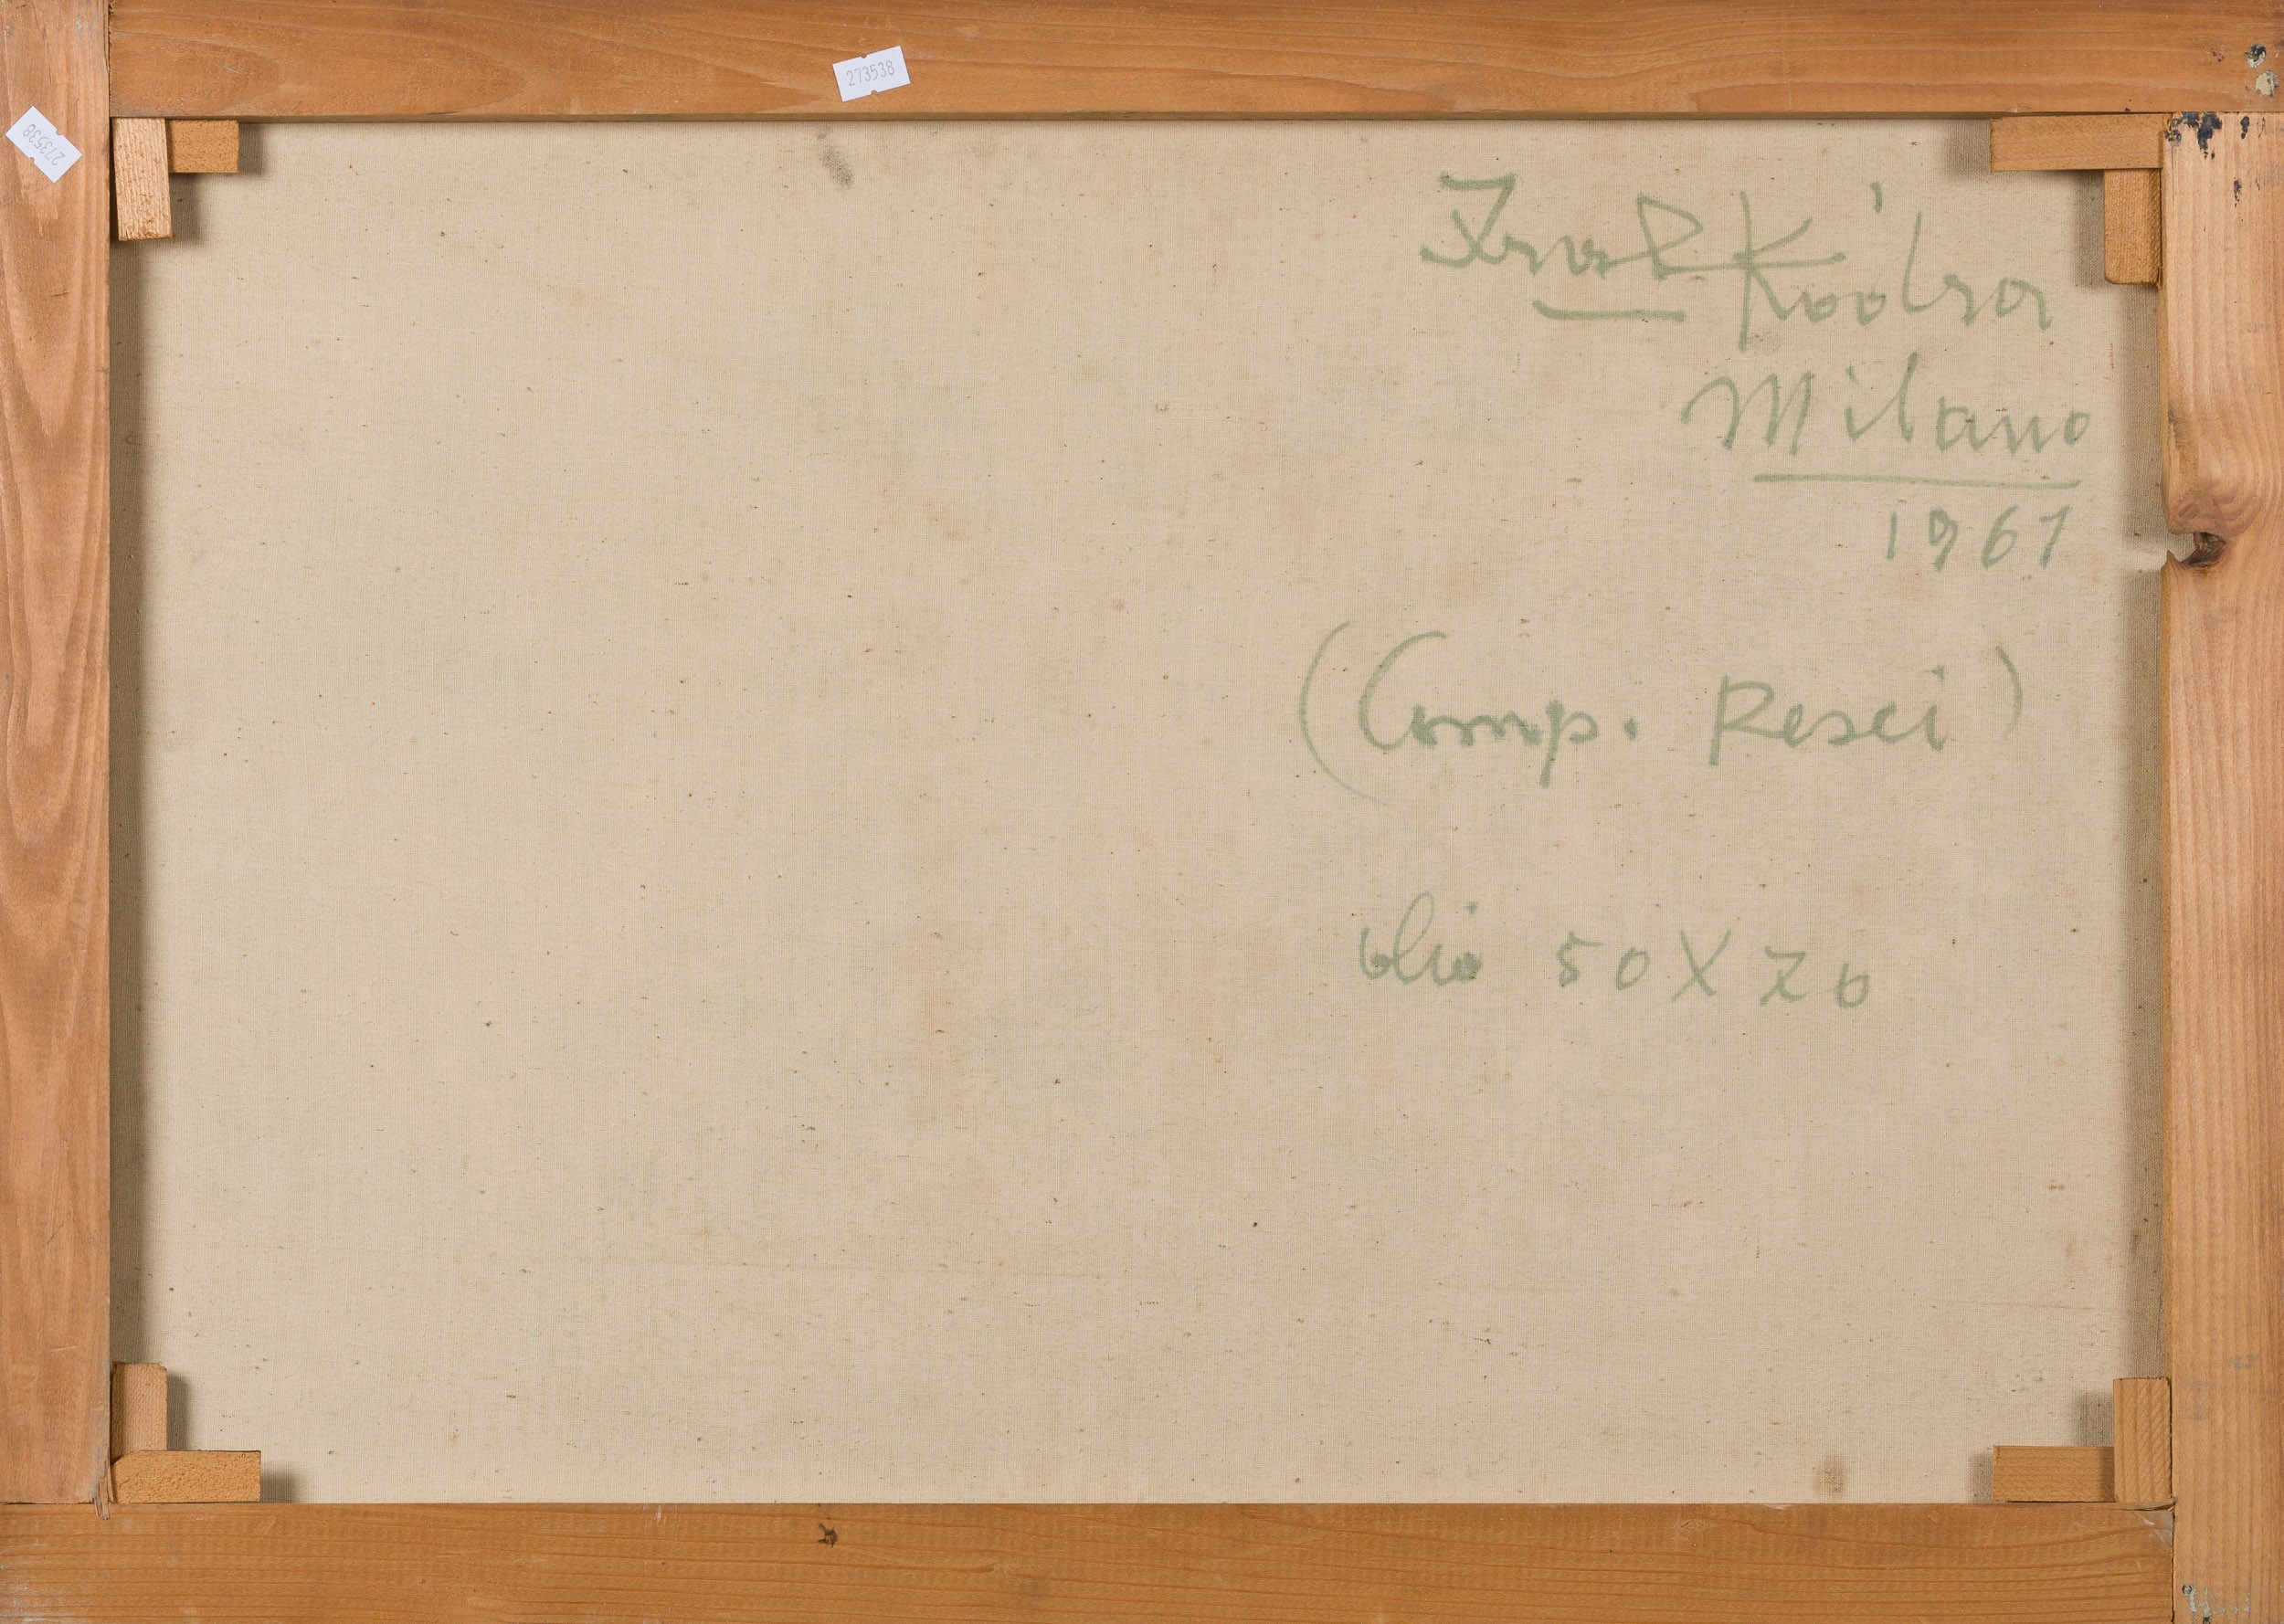 273538
273538
Kodra
Milano
1961
(Comp. Pesci)
olio 50 X 70